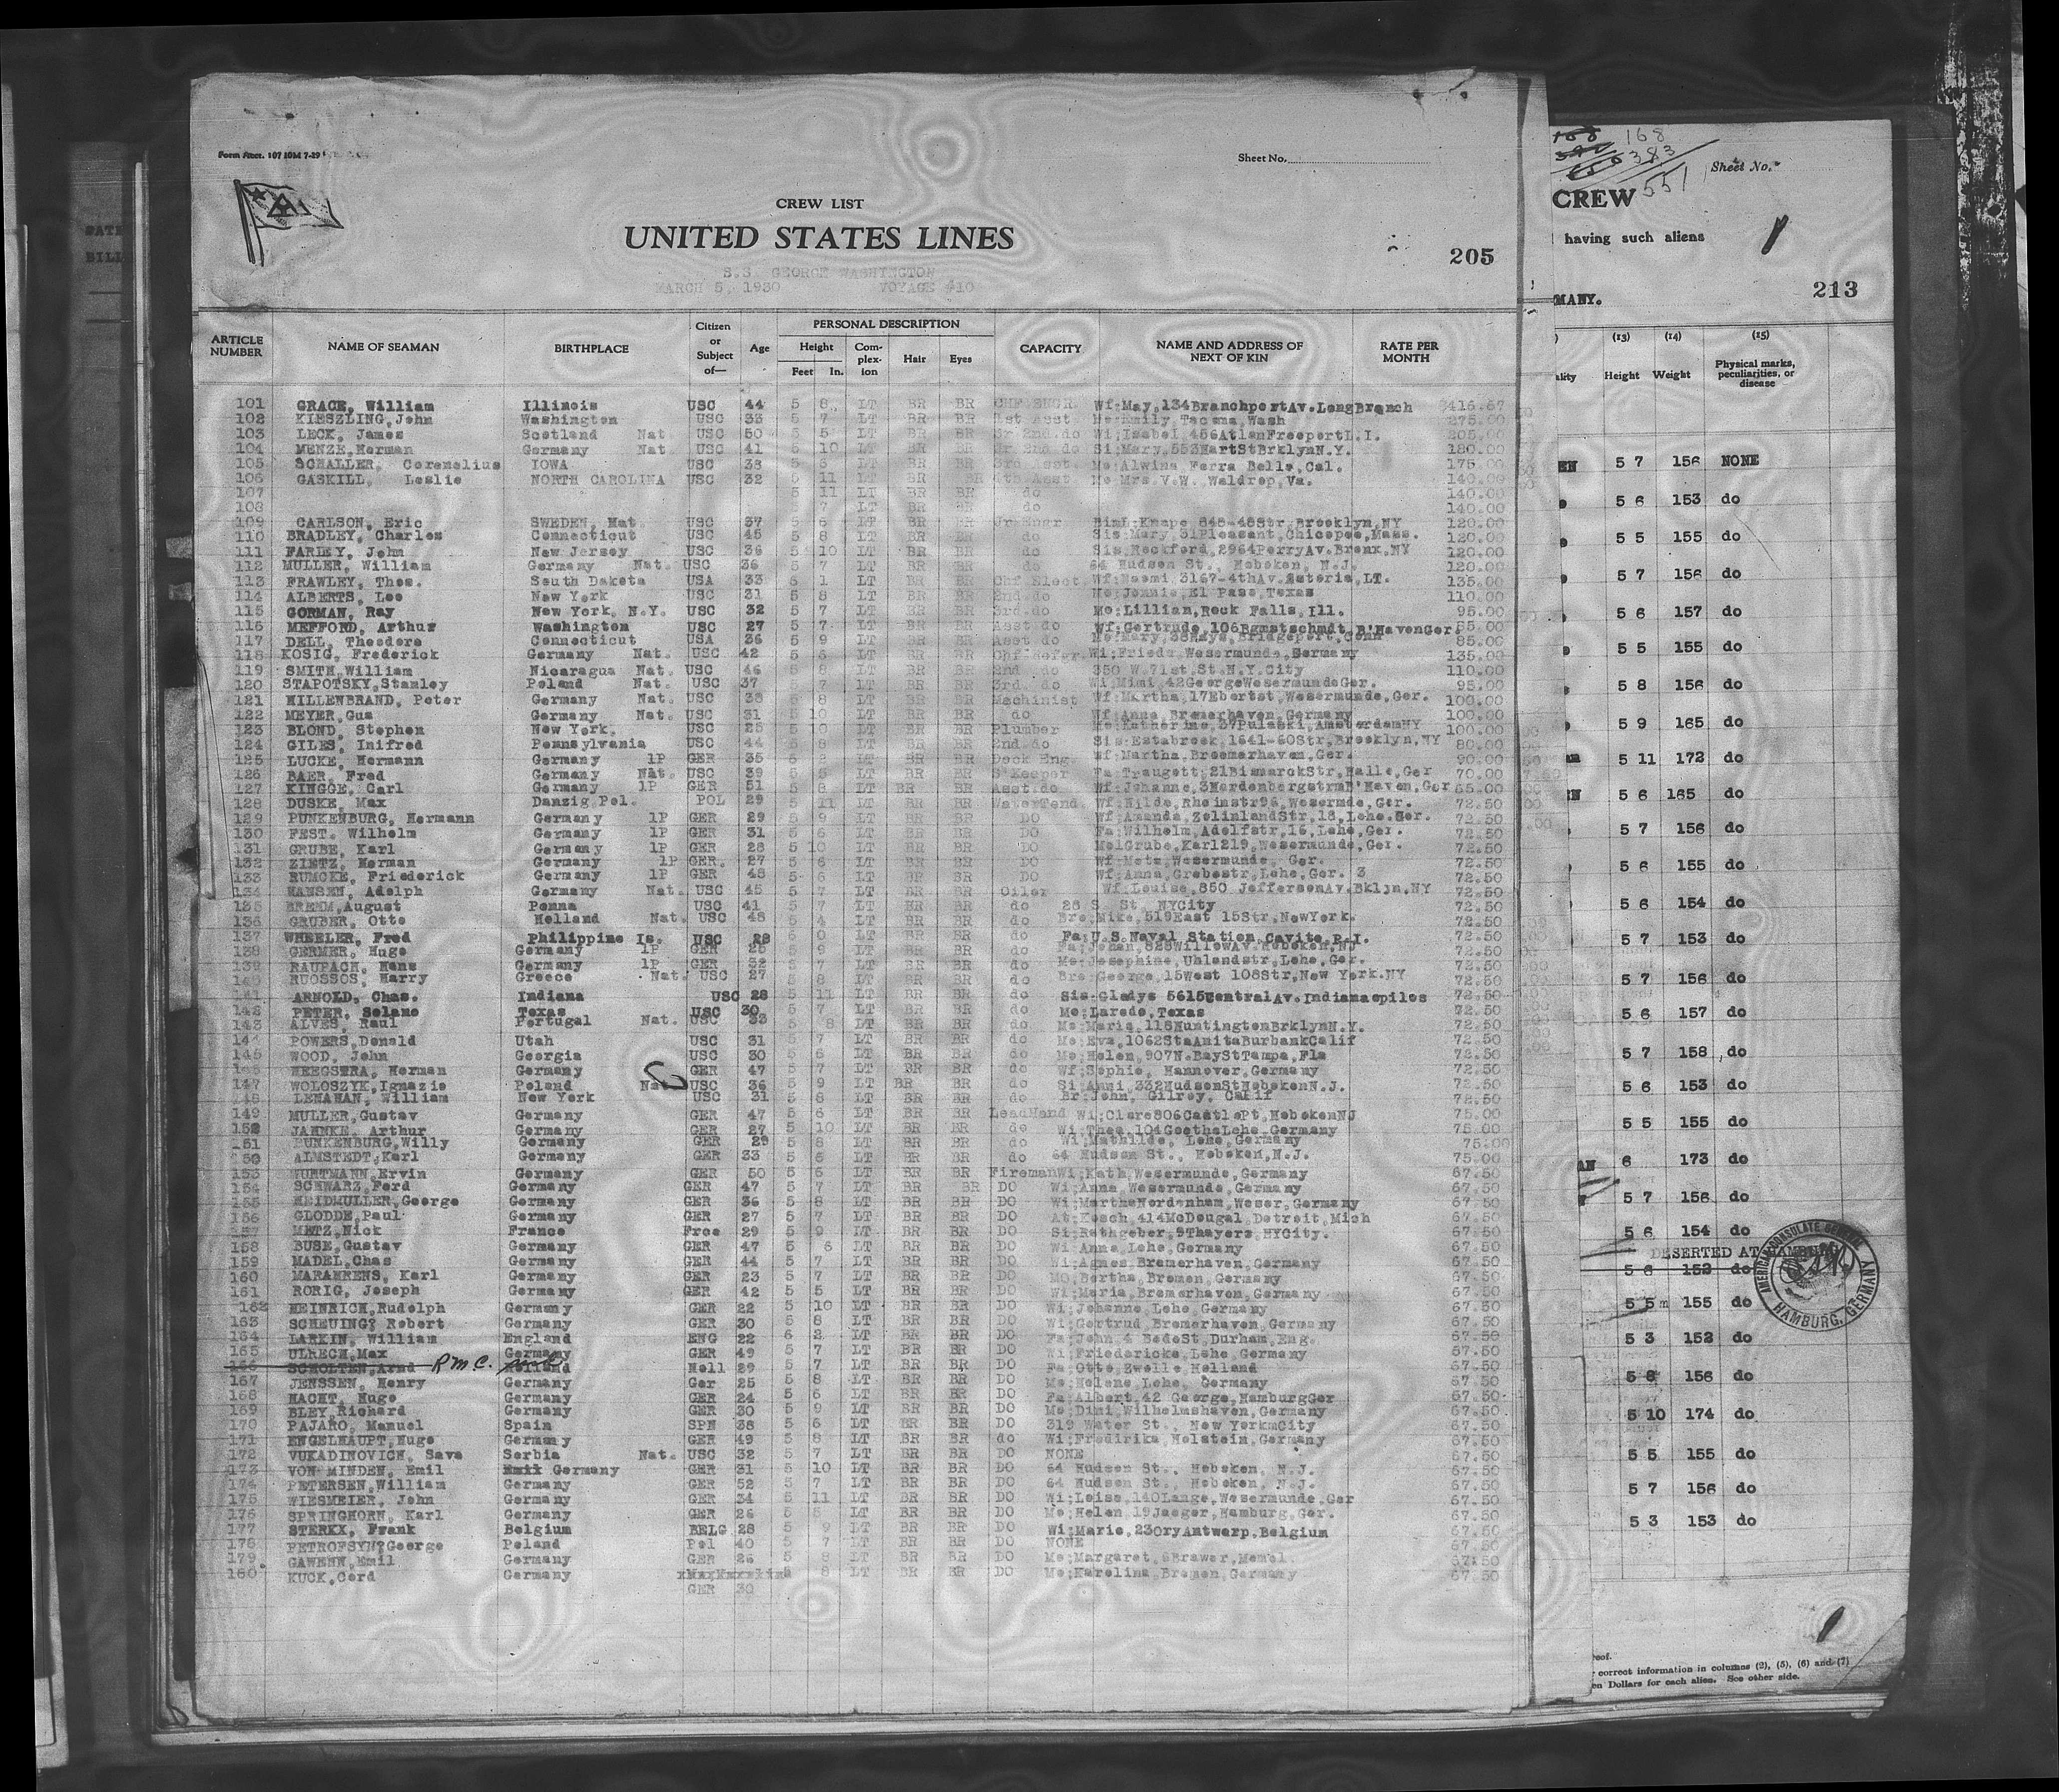 Form Acct. 107 10M 7-29
Sheet No.
CREW LIST
UNITED STATES LINES
205
S.S. GEORGE WASHINGTON
MARCH 5, 1930 VOYAGE #10
ARTICLE NUMBER NAME OF SEAMAN BIRTHPLACE Citizen or Subject of— Age PERSONAL DESCRIPTION Height Feet In. Complexion Hair Eyes CAPACITY NAME AND ADDRESS OF NEXT OF KIN RATE PER MONTH
101 GRACE, William Illinois USC 44 5 8 LT BR BR CHF ENGR Wf:May,134BranchportAv.LongBranch 416.67
102 KIESZLING,John Washington USC 33 5 7 LT BR BR 1st Asst Mo:Emily Tacoma,Wash 275.00
103 LECK, James Scotland Nat USC 50 5 5 LT BR BR Wi;Isabel,456AtlanFreeportL.I. 205.00
104 MENZE,Herman Germany Nat USC 41 5 10 LT BR BR Si;Mary,553HartStBrklynN.Y. 180.00
105 SCHALLER, Corenelius IOWA USC 38 5 LT BR BR 3rd Asst. Mo:Alwina Ferra Bella, Cal. 175.00
106 GASKILL, Leslie NORTH CAROLINA USC 32 5 11 LT BR BR 4th Asst Mo Mrs.V.W. Waldrop,Va. 140.00
107 5 11 LT BR BR do 140.00
108 5 7 LT BR BR do 140.00
109 CARLSON, Eric SWEDEN, Nat USC 37 5 6 LT BR BR Jr Engr Knape 848-48Str,Brooklyn,NY 120.00
110 BRADLEY, Charles Connecticut USC 45 5 8 LT BR BR do Sis:Mary,31Pleasant,Chicopee,Mass. 120.00
111 FARLEY, John New Jersey USC 36 5 10 LT BR BR do Sis:Rockford,2964PerryAv.Bronx,NY 120.00
112 MULLER, William Germany Nat. USC 36 5 7 LT BR BR do 64 Hudson St., Hoboken, N.J. 120.00
113 FRAWLEY, Thos. South Dakota USA 33 1 LT BR BR Chf Elect Wf:Naomi,3167-4thAv.Astoria,LI. 135.00
114 ALBERTS, Leo New York USC 31 5 8 LT BR BR 2nd do Mo:Jennie,El Paso,Texas 110.00
115 GORMAN, Ray New York, N.Y. USC 32 5 7 LT BR BR 3rd do Mo:Lillian,Rock Falls, Ill. 95.00
116 MEFFORD, Arthur Washington USC 27 5 7 LT BR BR Asst do Wf:Gertrude,106Bgmstschmdt,B'HavenGer. 85.00
117 DELL, Theodore Connecticut USA 36 5 9 LT BR BR Asst do 85.00
118 KOSIG, Frederick Germany Nat. USC 42 5 6 LT BR BR Chf Refgr. Wi;Frieda,Wesermunde,Germany 135.00
119 SMITH,William Nicaragua Nat. USC 46 5 8 LT BR BR 2nd do 350 W.71st.St.N.Y.City 110.00
120 STAPOTSKY,Stanley Poland Nat. USC 37 5 7 LT BR BR 3rd. do Wi;Mimi,42GeorgeWesermundeGer. 95.00
121 HILLENBRAND, Peter Germany Nat. USC 38 5 8 LT BR BR Machinist Wf:Martha,17Ebertst,Wesermunde,Ger. 100.00
122 MEYER,Gus Germany Nat. USC 31 5 10 LT BR BR do Wf:Anna,Bremerhaven,Germany 100.00
123 BLOND, Stephen New York. USC 25 5 10 LT BR BR Plumber Mo:Katherine,37Pulaski,AmsterdamNY 100.00
124 GILES, Inifred Pennsylvania USC 44 5 8 LT BR BR 2nd.do Sis:Estabrook,1641-60Str,Brooklyn,NY 80.00
125 LUCKE, Hermann Germany 1P GER 35 5 2 LT BR BR Deck Eng. Wf:Martha,Bremerhaven,Ger. 90.00
126 BAER, Fred Germany Nat. USC 39 5 5 LT BR BR S'Keeper Fa:Traugott,21BismarckStr,Halle,Ger 70.00
127 KINGGE, Carl Germany 1P GER 51 5 8 LT BR BR Asst.do Wf:Johanne,3HardenbergstrmB'Haven,Ger 65.00
128 DUSKE, Max Danzig,Pol. POL 29 5 11 LT BR BR WaterTend. Wf:Hilda,Rheinstr96,Wesermde,Ger. 72.50
129 PUNKENBURG, Hermann Germany 1P GER 29 5 9 LT BR BR DO Wf:Amanda,ZolinlandStr,18,Lehe.Ger. 72.50
130 FEST, Wilhelm Germany 1P GER 31 5 6 LT BR BR DO Fa:Wilhelm,Adolfstr,16,Lehe,Ger. 72.50
131 GRUBE, Karl Germany 1P GER 28 5 10 LT BR BR DO MolGrube,Karl219,Wesermunde,Ger. 72.50
132 ZIETZ, Herman Germany 1P GER. 27 5 6 LT BR BR DO Wf:Meta,Wesermunde, Ger. 72.50
133 RUMCKE, Friederick Germany 1P GER 48 5 6 LT BR BR DO Wf:Anna,Grabestr,Lehe,Ger. 3 72.50
134 HANSEN, Adolph Germany Nat. USC 45 5 7 LT BR BR Oiler Wf:Louise,850 JeffersonAv.Bklyn,NY 72.50
135 BREHM,August Penna USC 41 5 7 LT BR BR do 28 S. St. NYCity 72.50
136 GRUBER, Otto Holland Nat. USC 48 5 4 LT BR BR do Bro:Mike,519East 15Str,NewYork. 72.50
137 WHEELER, Fred Philippine Is. USC 28 6 0 LT BR BR do Fa:U.S.Naval Station,Cavite,P.I. 72.50
138 GERMER, Hugo Germany 1P GER 25 5 9 LT BR BR do Fa:Johan,828WillowAv.Hoboken,NJ 72.50
139 RAUPACH, Hans Germany 1P GER 32 5 7 LT BR BR do Mo:Josephine,Uhlandstr,Lehe,Ger. 72.50
140 RUOSSOS, Harry Greece Nat. USC 27 5 8 LT BR BR do Bro:George,15West 108Str,New York.NY 72.50
141 ARNOLD, Chas. Indiana USC 28 5 11 LT BR BR do Sis:Gladys 5615CentralAv.Indianaopilos 72.50
142 PETER, Solano Texas USC 30 5 7 LT BR BR do Mo:Laredo,Texas 72.50
143 ALVES, Raul Portugal Nat. USC 33 5 8 LT BR BR do Mo:Maria,118HuntingtonBrklynN.Y. 72.50
144 POWERS,Donald Utah USC 31 5 7 LT BR BR do Mo:Eva,1062StaAnitaBurbankCalif 72.50
145 WOOD, John Georgia USC 30 5 6 LT BR BR do Mo:Helen,907N.BayStTampa,Fla 72.50
146 HEEGSTRA, Herman Germany GER 47 5 7 LT BR BR do Wf:Sophie, Hannover,Germany 72.50
147 WOLOSZYK,Ignazio Poland Nat USC 36 5 9 LT BR BR do Si:Anni,332HudsonStHobokenN.J. 72.50
148 LENAHAN, William New York USC 31 5 8 LT BR BR do Br:John, Gilroy, Calif 72.50
149 MULLER,Gustav Germany GER 47 5 6 LT BR BR LeadHand Wi;Clara806CastlePt,HobokenNJ 75.00
152 JAHNKE, Arthur Germany GER 27 5 10 LT BR BR do Wi;Thea,104GoetheLehe,Germany 75.00
151 PUNKENBURG,Willy Germany GER 29 5 8 LT BR BR do Wi;Mathilde, Lehe,Germany 75.00
150 ALMSTEDT,Karl Germany GER 33 5 6 LT BR BR do 64 Hudson St., Hoboken,N.J. 75.00
153 WURTMANN,Ervin Germany GER 50 5 6 LT BR BR Fireman Wi;Kath,Wesermunde,Germany 67.50
154 SCHWARZ,Ferd Germany GER 47 5 7 LT BR BR DO Wi;Anna,Wesermunde,Germany 67.50
155 HEIDMULLER,George Germany GER 36 5 8 LT BR BR DO Wi;MarthaNordenham,Weser,Germany 67.50
156 GLODDE,Paul Germany GER 27 5 7 LT BR BR DO At:Kosch,414McDougal,Detroit,Mich 67.50
157 METZ,Nick France Frce 29 5 9 LT BR BR DO Si;Rathgeber,9Thayers,NYCity. 67.50
158 BUSE,Gustav Germany GER 47 5 6 LT BR BR DO Wi;Anna,Lehe,Germany 67.50
159 MADEL,Chas Germany GER 44 5 7 LT BR BR DO Wi;Agnes,Bremerhaven,Germany 67.50
160 MARAHRENS, Karl Germany GER 23 5 7 LT BR BR DO MO;Bertha,Bremen,Germany 67.50
161 RORIG, Joseph Germany GER 42 5 5 LT BR BR DO Wi;Maria,Bremerhaven,Germany 67.50
162 HEINRICH,Rudolph Germany GER 22 5 10 LT BR BR DO Wi;Johanne,Lehe,Germany 67.50
163 SCHEUING? Robert Germany GER 30 5 8 LT BR BR DO Wi;Gertrud,Bremerhaven,Germany 67.50
164 LARKIN, William England ENG 22 6 2 LT BR BR DO Fa;John,4 BedeSt,Durham,Eng. 67.50
165 ULRECH,Max Germany GER 49 5 7 LT BR BR DO Wi;Friedericke,Lehe,Germany 67.50
166 SCHOLTEN,Arnd R.M.C. Holland Holl 29 5 7 LT BR BR DO Fa;Otto,Zwolle,Holland 67.50
167 JENSSEN, Henry Germany Ger 25 5 8 LT BR BR DO Mo;Helene,Lehe, Germany 67.50
168 HACHT, Hugo Germany GER 24 5 6 LT BR BR DO Fa;Albert,42 George,HamburgGer 67.50
169 BLEY,Richard Germany GER 30 5 9 LT BR BR DO Mo;Dini,Wilhelmshaven,Germany 67.50
170 PAJARO, Manuel Spain SPN 38 5 6 LT BR BR DO 319 Water St., New YorkmCity 67.50
171 ENGELHAUPT,Hugo Germany GER 49 5 8 LT BR BR do Wi;Fredirika,Holstein,Germany 67.50
172 VUKADINOVICH, Sava Serbia Nat. USC 32 5 7 LT BR BR DO NONE 67.50
173 VON MINDEN, Emil Emil Germany GER 31 5 10 LT BR BR DO 64 Hudson St., Hoboken, N.J. 67.50
174 PETERSEN,William Germany GER 52 5 7 LT BR BR DO 64 Hudson St., Hoboken, N.J. 67.50
175 WIESMEIER, John Germany GER 34 5 11 LT BR BR DO Wi;Loise,140Lange,Wesermunde,Ger 67.50
176 SPRINGHORN, Karl Germany GER 26 5 5 LT BR BR DO Mo;Helen,19Jaeger,Hamburg,Ger. 67.50
177 STERKX, Frank Belgium BELG 28 5 9 LT BR BR DO Wi;Marie,23OryAntwerp,Belgium 67.50
178 PETROFSYN?George Poland Pol 40 5 7 LT BR BR DO NONE 67.50
179. GAWENN,Emil Germany GER 26 5 8 LT BR BR DO Mo;Margaret,6Brawer,Memel. 67.50
180 KUCK,Cord Germany 8 LT BR BR DO Mo;Karolina,Bremen,Germany 67.50
GER 30
168
383
551
Sheet No.
CREW
having such aliens
213
MANY.
(13) (14) (15)
ality Height Weight Physical marks, peculiarities, or disease
EN 5 7 156 NONE
5 6 153 do
5 5 155 do
5 7 156 do
5 6 157 do
5 5 155 do
5 8 156 do
5 9 165 do
5 11 172 do
5 6 165 do
5 7 156 do
5 6 155 do
5 6 154 do
5 7 153 do
5 7 156 do
5 6 157 do
5 7 158 do
5 6 153 do
5 5 155 do
6 173 do
5 7 156 do
5 6 154 do
DESERTED AT HAMBURG
5 6 153 do
5 5 155 do
5 3 152 do
5 8 156 do
5 10 174 do
5 5 155 do
5 7 156 do
5 3 153 do
AMERICAN CONSULATE GENERAL
HAMBURG, GERMANY
reof.
correct information in columns (2), (5), (6) and (7)
en Dollars for each alien. See other side.